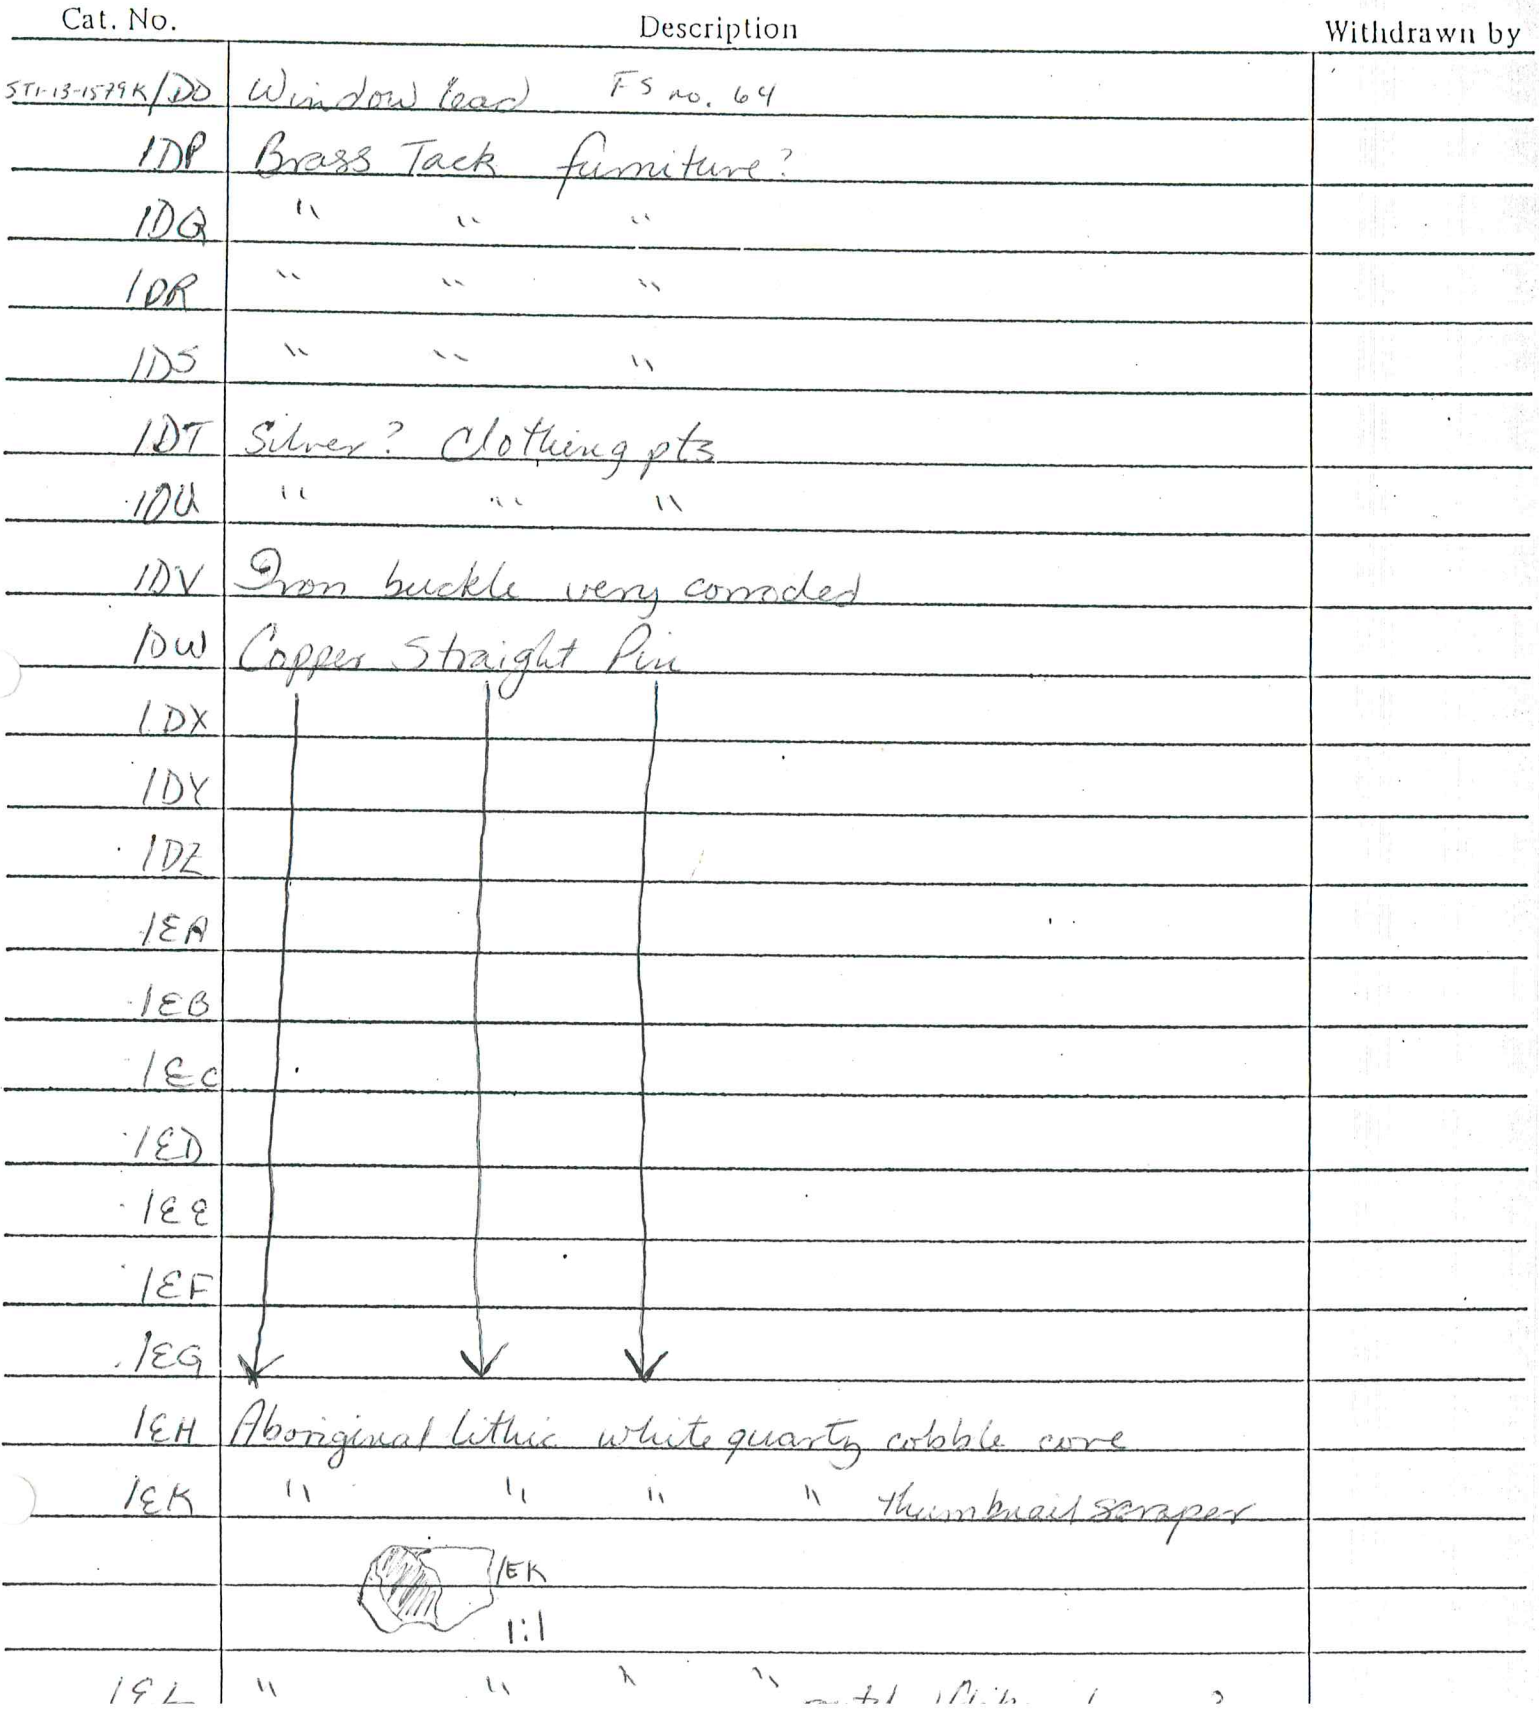 Cat. No. Description Withdrawn by
ST1-13-1579K/DO Window lead FS no. 64
/DP Brass Tack furniture?
/DQ " " "
/DR " " "
/DS " " "
/DT Silver? Clothing pts
/DU " " "
/DV Iron buckle very corroded
/DW Copper Straight Pin
/DX
/DY
/DZ
/EA
/EB
/EC
/ED
/EE
/EF
/EG
/EH Aboriginal lithic white quartz cobble core
/EK " " " " thumbnail scraper
/EK
1:1
/EL " " " "